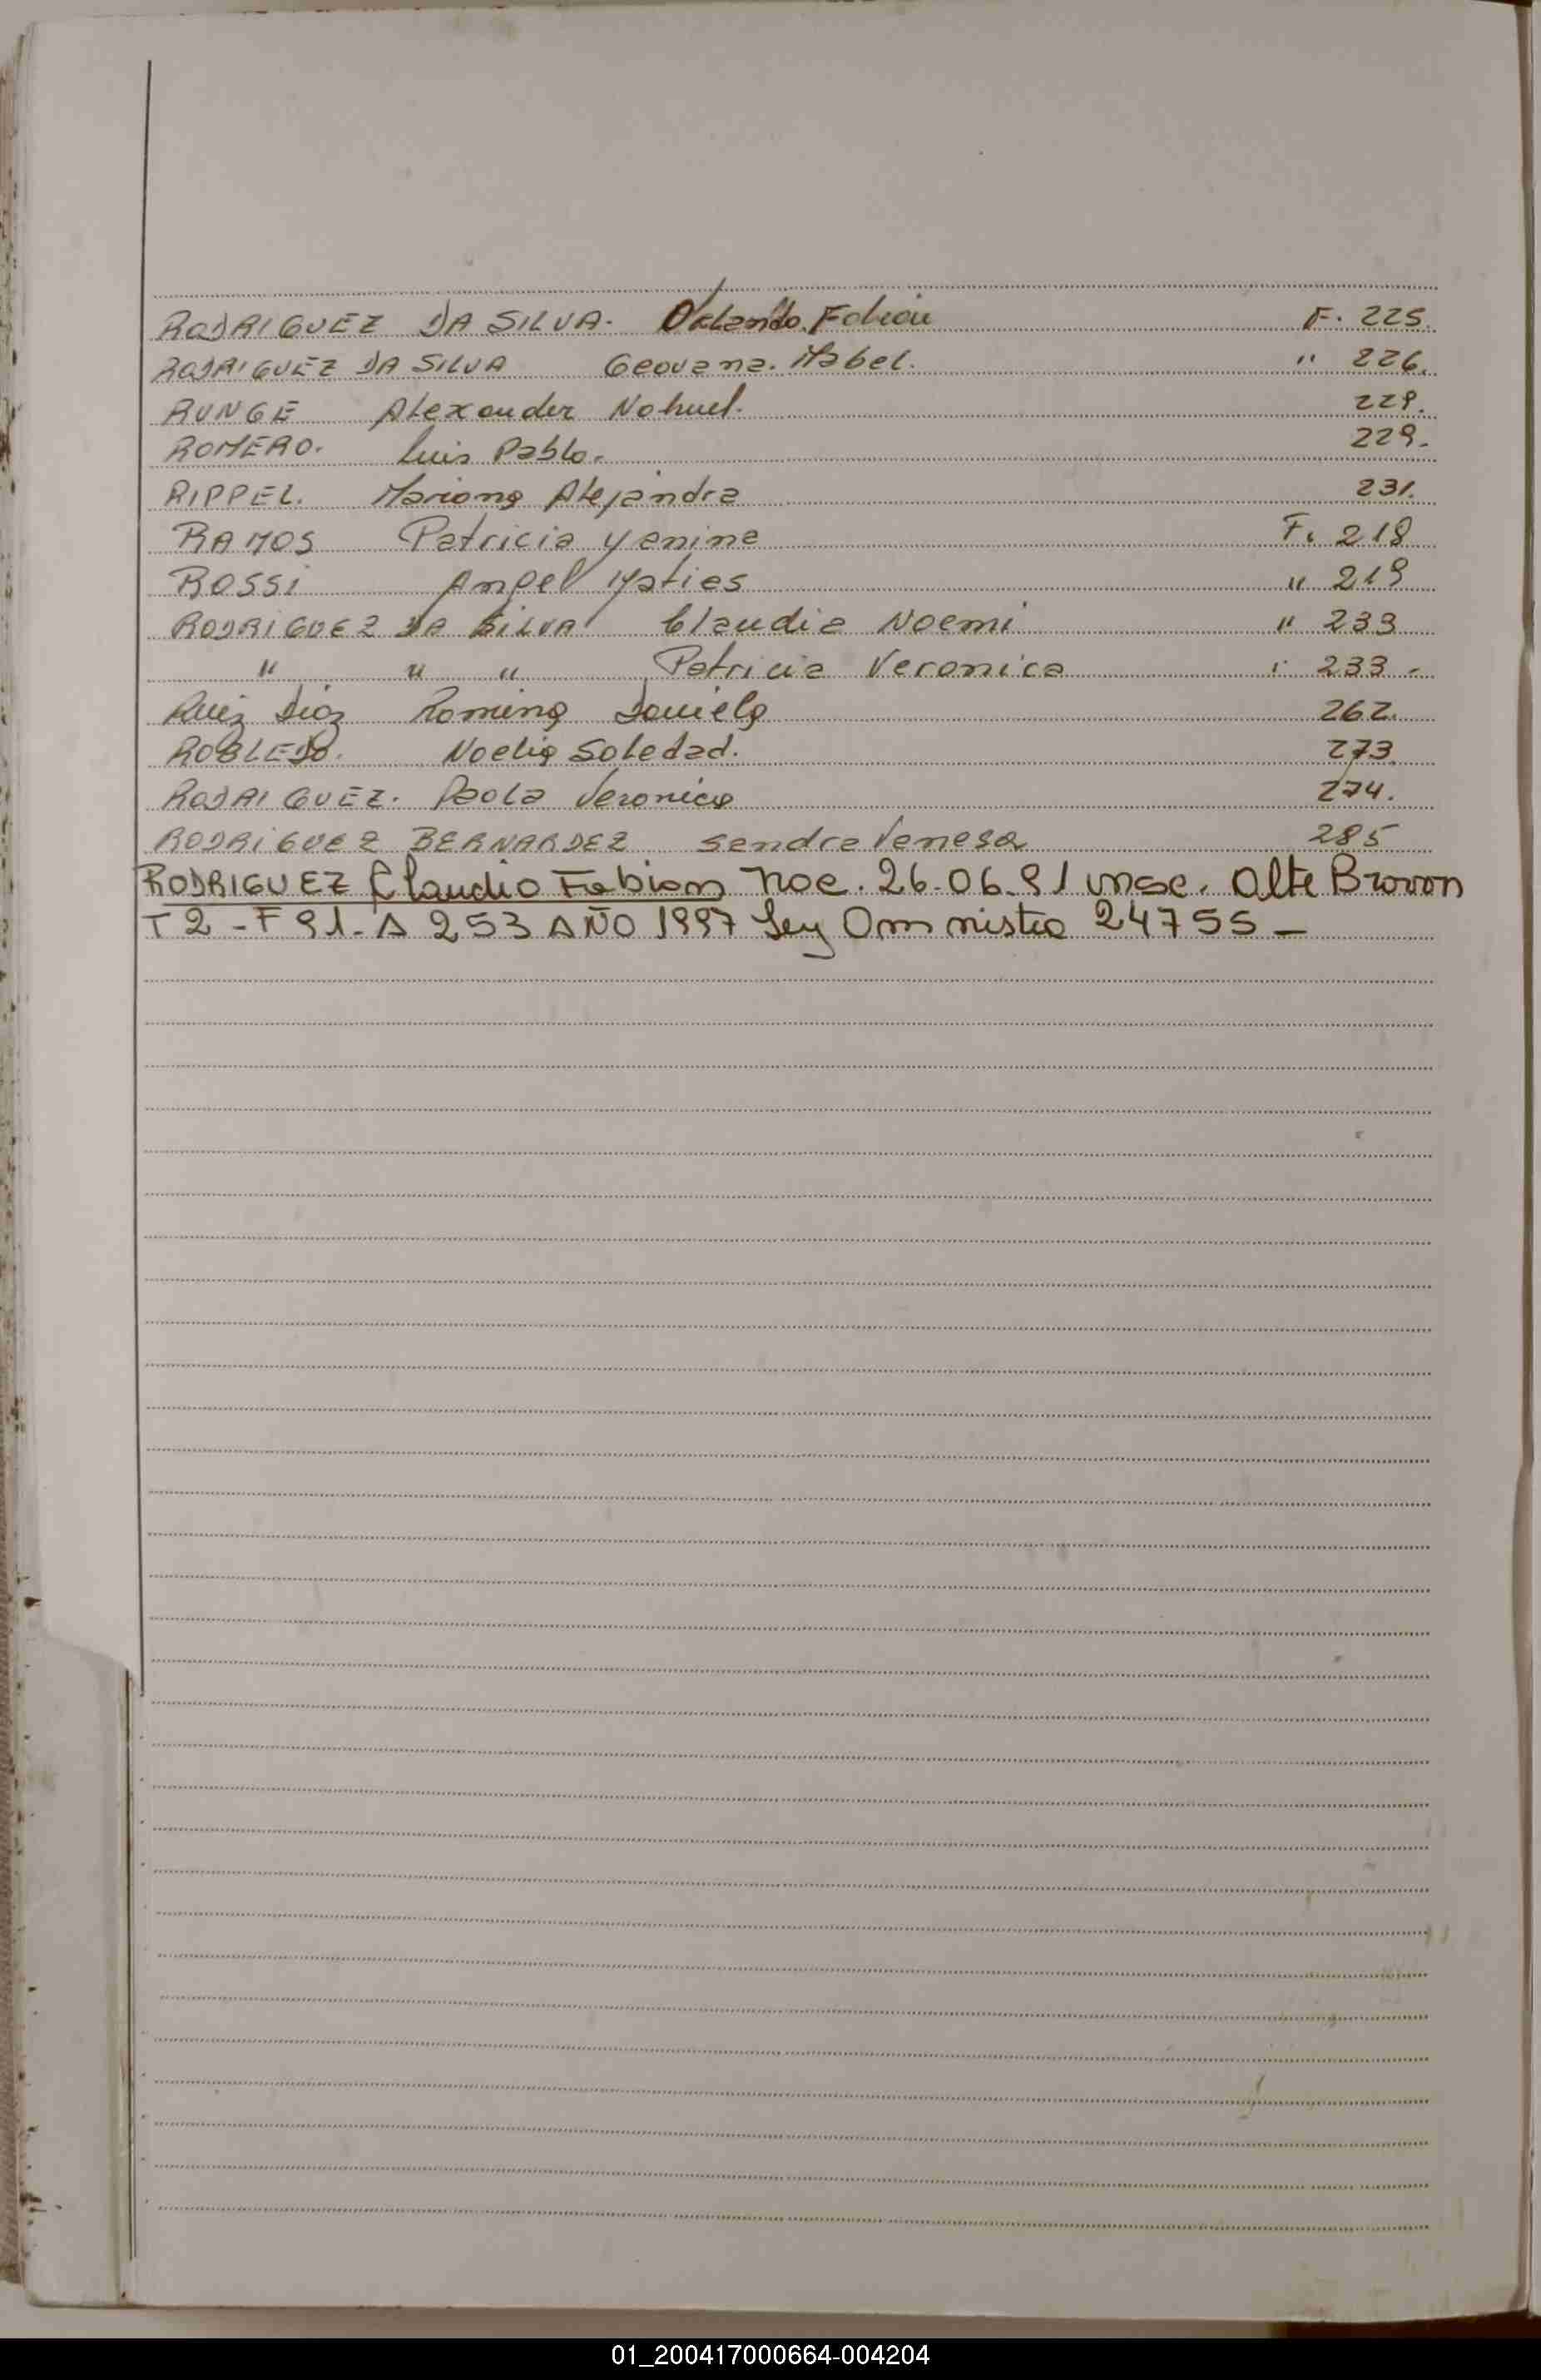 RODRIGUEZ DA SILVA. Orlando Fabian F. 225.
RODRIGUEZ DA SILVA Geovana. Mabel. " 226.
RUNGE Alexander Nahuel. 229.
ROMERO. Luis Pablo. 229.
RIPPEL. Mariana Alejandra 231.
RAMOS Patricia Yanina F. 218
ROSSI Angel Matias " 219
RODRIGUEZ DA SILVA Claudia Noemi " 233
" " " Patricia Veronica " 233 -
Ruiz Diaz Romina Daniela 262.
ROBLEDO. Noelia Soledad. 273.
RODRIGUEZ. Paola Veronica 274.
RODRIGUEZ BERNARDEZ Sandra Vanesa 285
RODRIGUEZ Claudio Fabian nac. 26-06-91 insc. Alte Brown
T 2 - F 91 - A 253 AÑO 1997 Ley Amnistia 24755 -
01_200417000664-004204